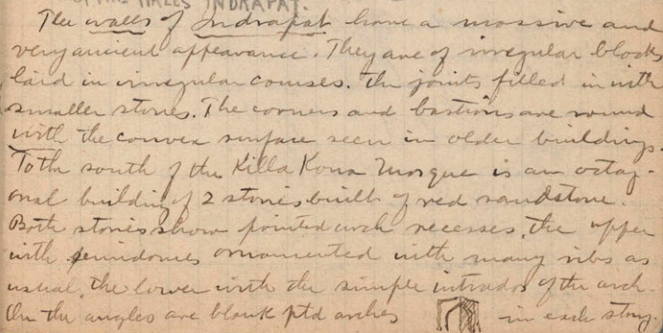 OF THE WALLS INDRAPAT.
The walls of Indrapat have a massive and
very ancient appearance. They are of irregular blocks
laid in irregular courses. The joints filled in with
smaller stones. The corners and bastions are round
with the convex surface seen in older buildings.
To the south of the Killa Kona Mosque is an octag-
onal building of 2 stories built of red sandstone.
Both stories show pointed arch recesses, the upper
with semidomes ornamented with many ribs as
usual, the lower with the simple intrados of the arch.
On the angles are blank ptd arches in each story.